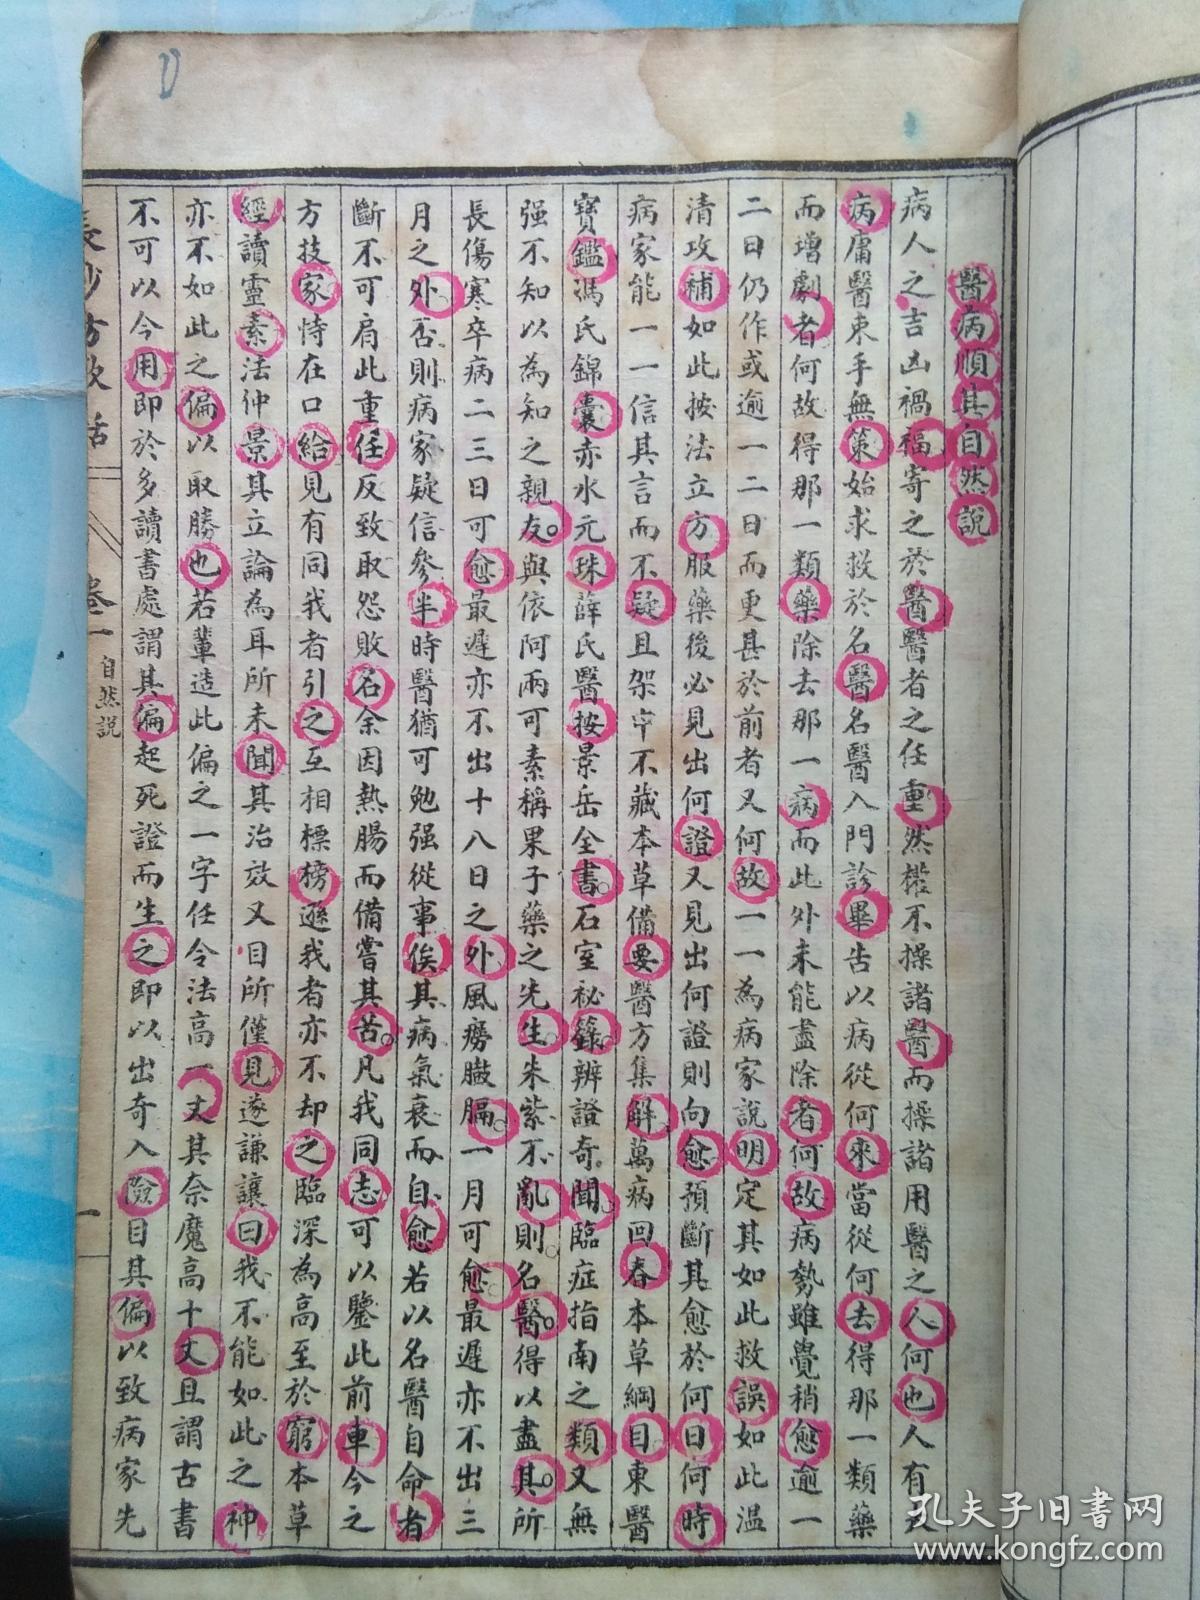 醫病順其自然説
病人之吉凶禍福寄之於醫醫者之任重然權不操諸醫而操諸用醫之人何也人有大
病庸醫束手無策始求救於名醫名醫入門診畢告以病從何來當從何去得那一類藥
而增劇者何故得那一類藥除去那一病而此外未能盡除者何故病勢雖覺稍愈逾一
二日仍作或逾一二日而更甚於前者又何故一一為病家說明定其如此救誤如此溫
清攻補如此按法立方服藥後必見出何證又見出何證則向愈預斷其愈於何日何時
病家能一一信其言而不疑且架中不藏本草備要醫方集解萬病回春本草綱目東醫
寶鑑馮氏錦囊赤水元珠薛氏醫按景岳全書石室祕籙辨證奇聞臨症指南之類又無
强不知以為知之親友與依阿兩可素稱果子藥之先生朱紫不亂則名醫得以盡其所
長傷寒卒病二三日可愈最遲亦不出十八日之外風癆臌膈一月可愈最遲亦不出三
月之外否則病家疑信參半時醫猶可勉强從事俟其病氣衰而自愈若以名醫自命者
斷不可肩此重任反致取怨敗名余因熱腸而備嘗其苦凡我同志可以鑒此前車今之
方技家恃在口給見有同我者引之互相標榜遜我者亦不却之臨深為高至於窮本草
經讀靈素法仲景其立論為耳所未聞其治效又目所僅見遂謙讓曰我不能如此之神
亦不如此之偏以取勝也若輩造此偏之一字任令法高一丈其奈魔高十丈且謂古書
不可以今用即於多讀書處謂其偏起死證而生之即以出奇入險目其偏以致病家先
長沙方歌括 卷一 自然説 一
孔夫子旧书网
www.kongfz.com